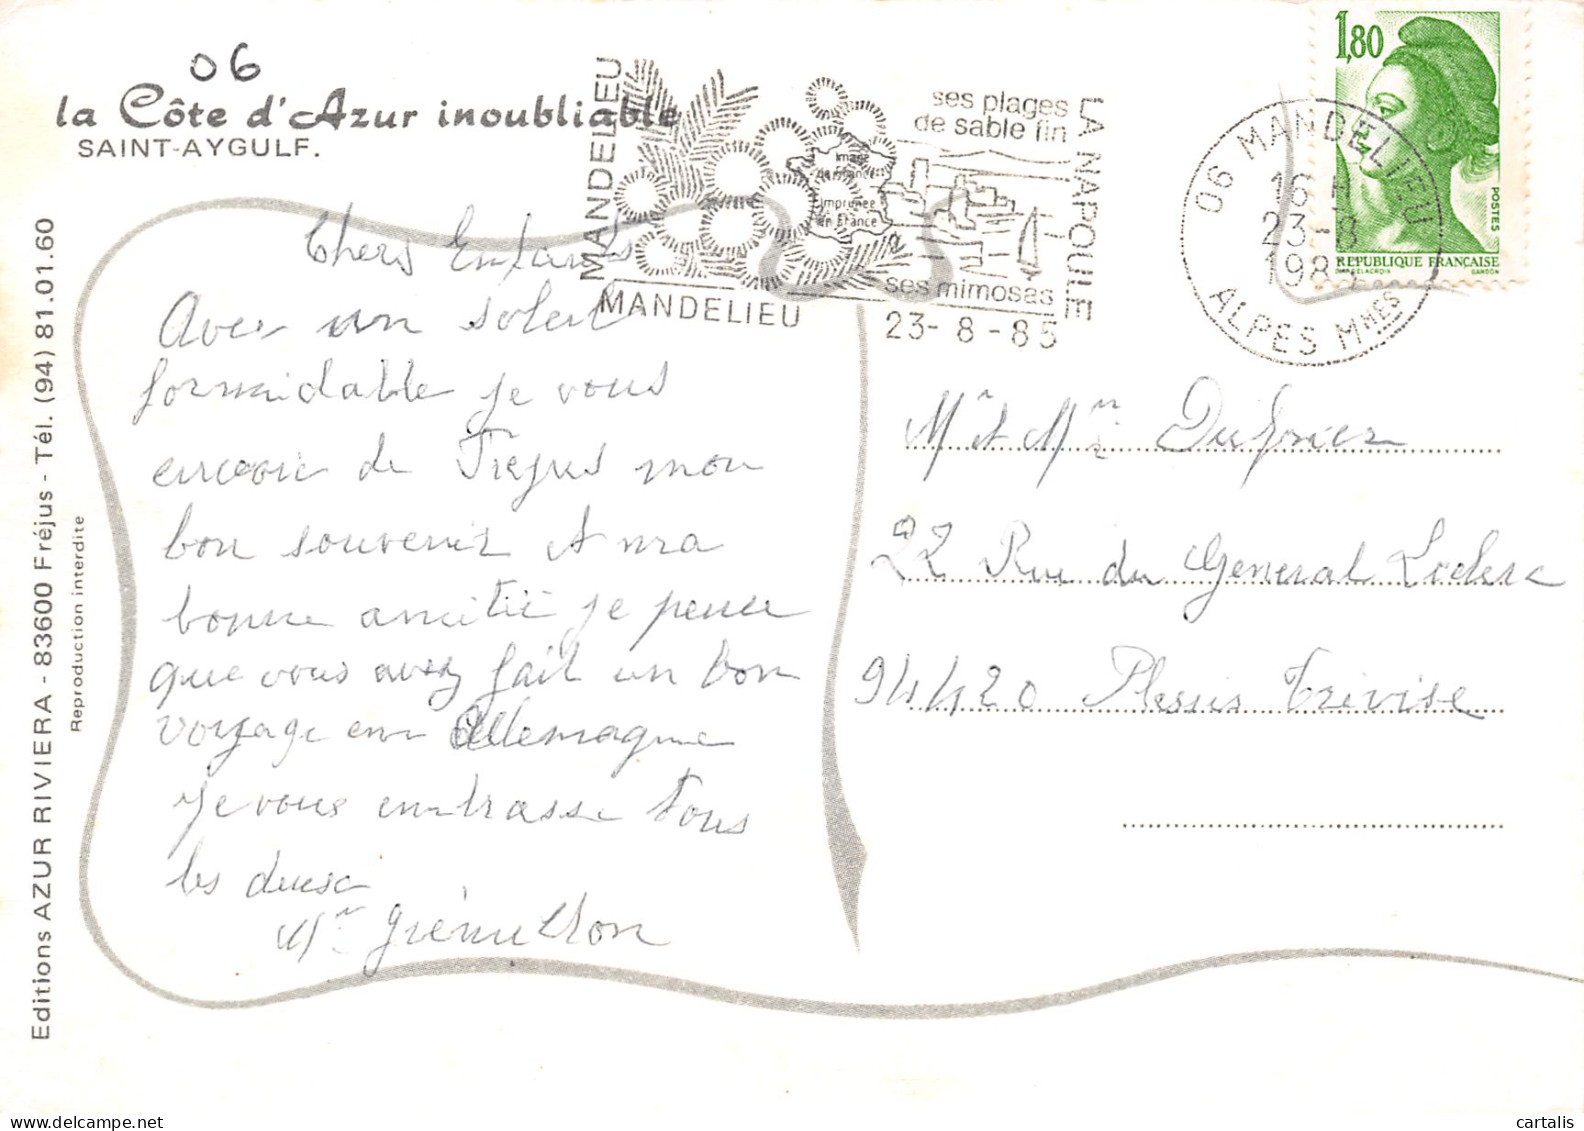 06
la Côte d'Azur inoubliable
SAINT-AYGULF.
MANDELIEU
MANDELIEU
image
de France
imprimée
en France
ses plages
de sable fin
ses mimosas
LA NAPOULE
23-8-85
06 MANDELIEU
16 H
23-8
1985
ALPES MMES
1,80
POSTES
REPUBLIQUE FRANÇAISE
GANDON
Chers Enfants
Avec un soleil
formidable je vous
envoie de Frejus mon
bon souvenir et ma
bonne amitié je pense
que vous avez fait un bon
voyage en Allemagne
Je vous embrasse tous
les deux
Mr et Mme Dufrier
22 Rue du General Leclerc
94420 Plessis Trevise
Editions AZUR RIVIERA - 83600 Fréjus - Tél. (94) 81.01.60
Reproduction interdite
cartalis
delcampe.net